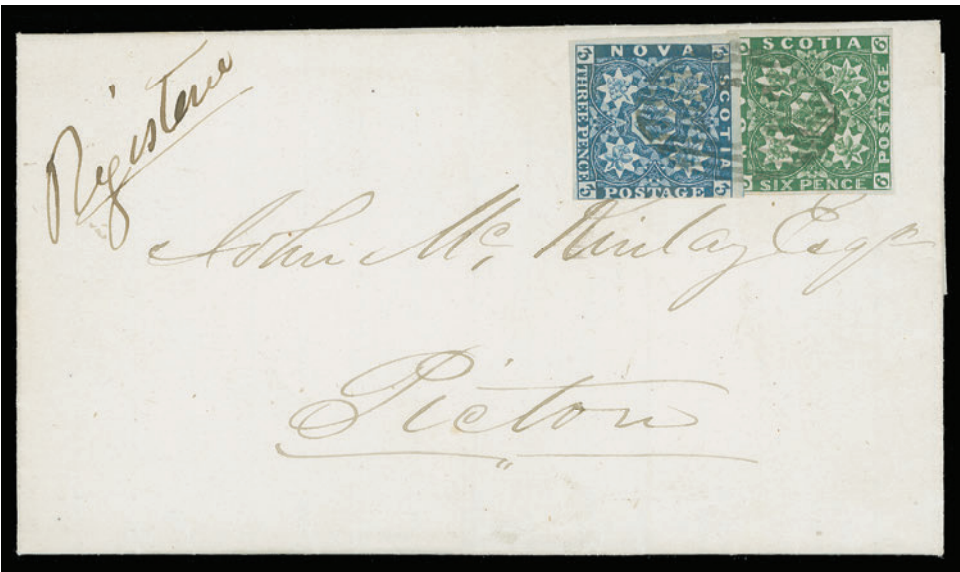 Registered
NOVA SCOTIA
THREE PENCE
POSTAGE
SCOTIA
POSTAGE
SIX PENCE
John McKinlay Esqr
Pictou